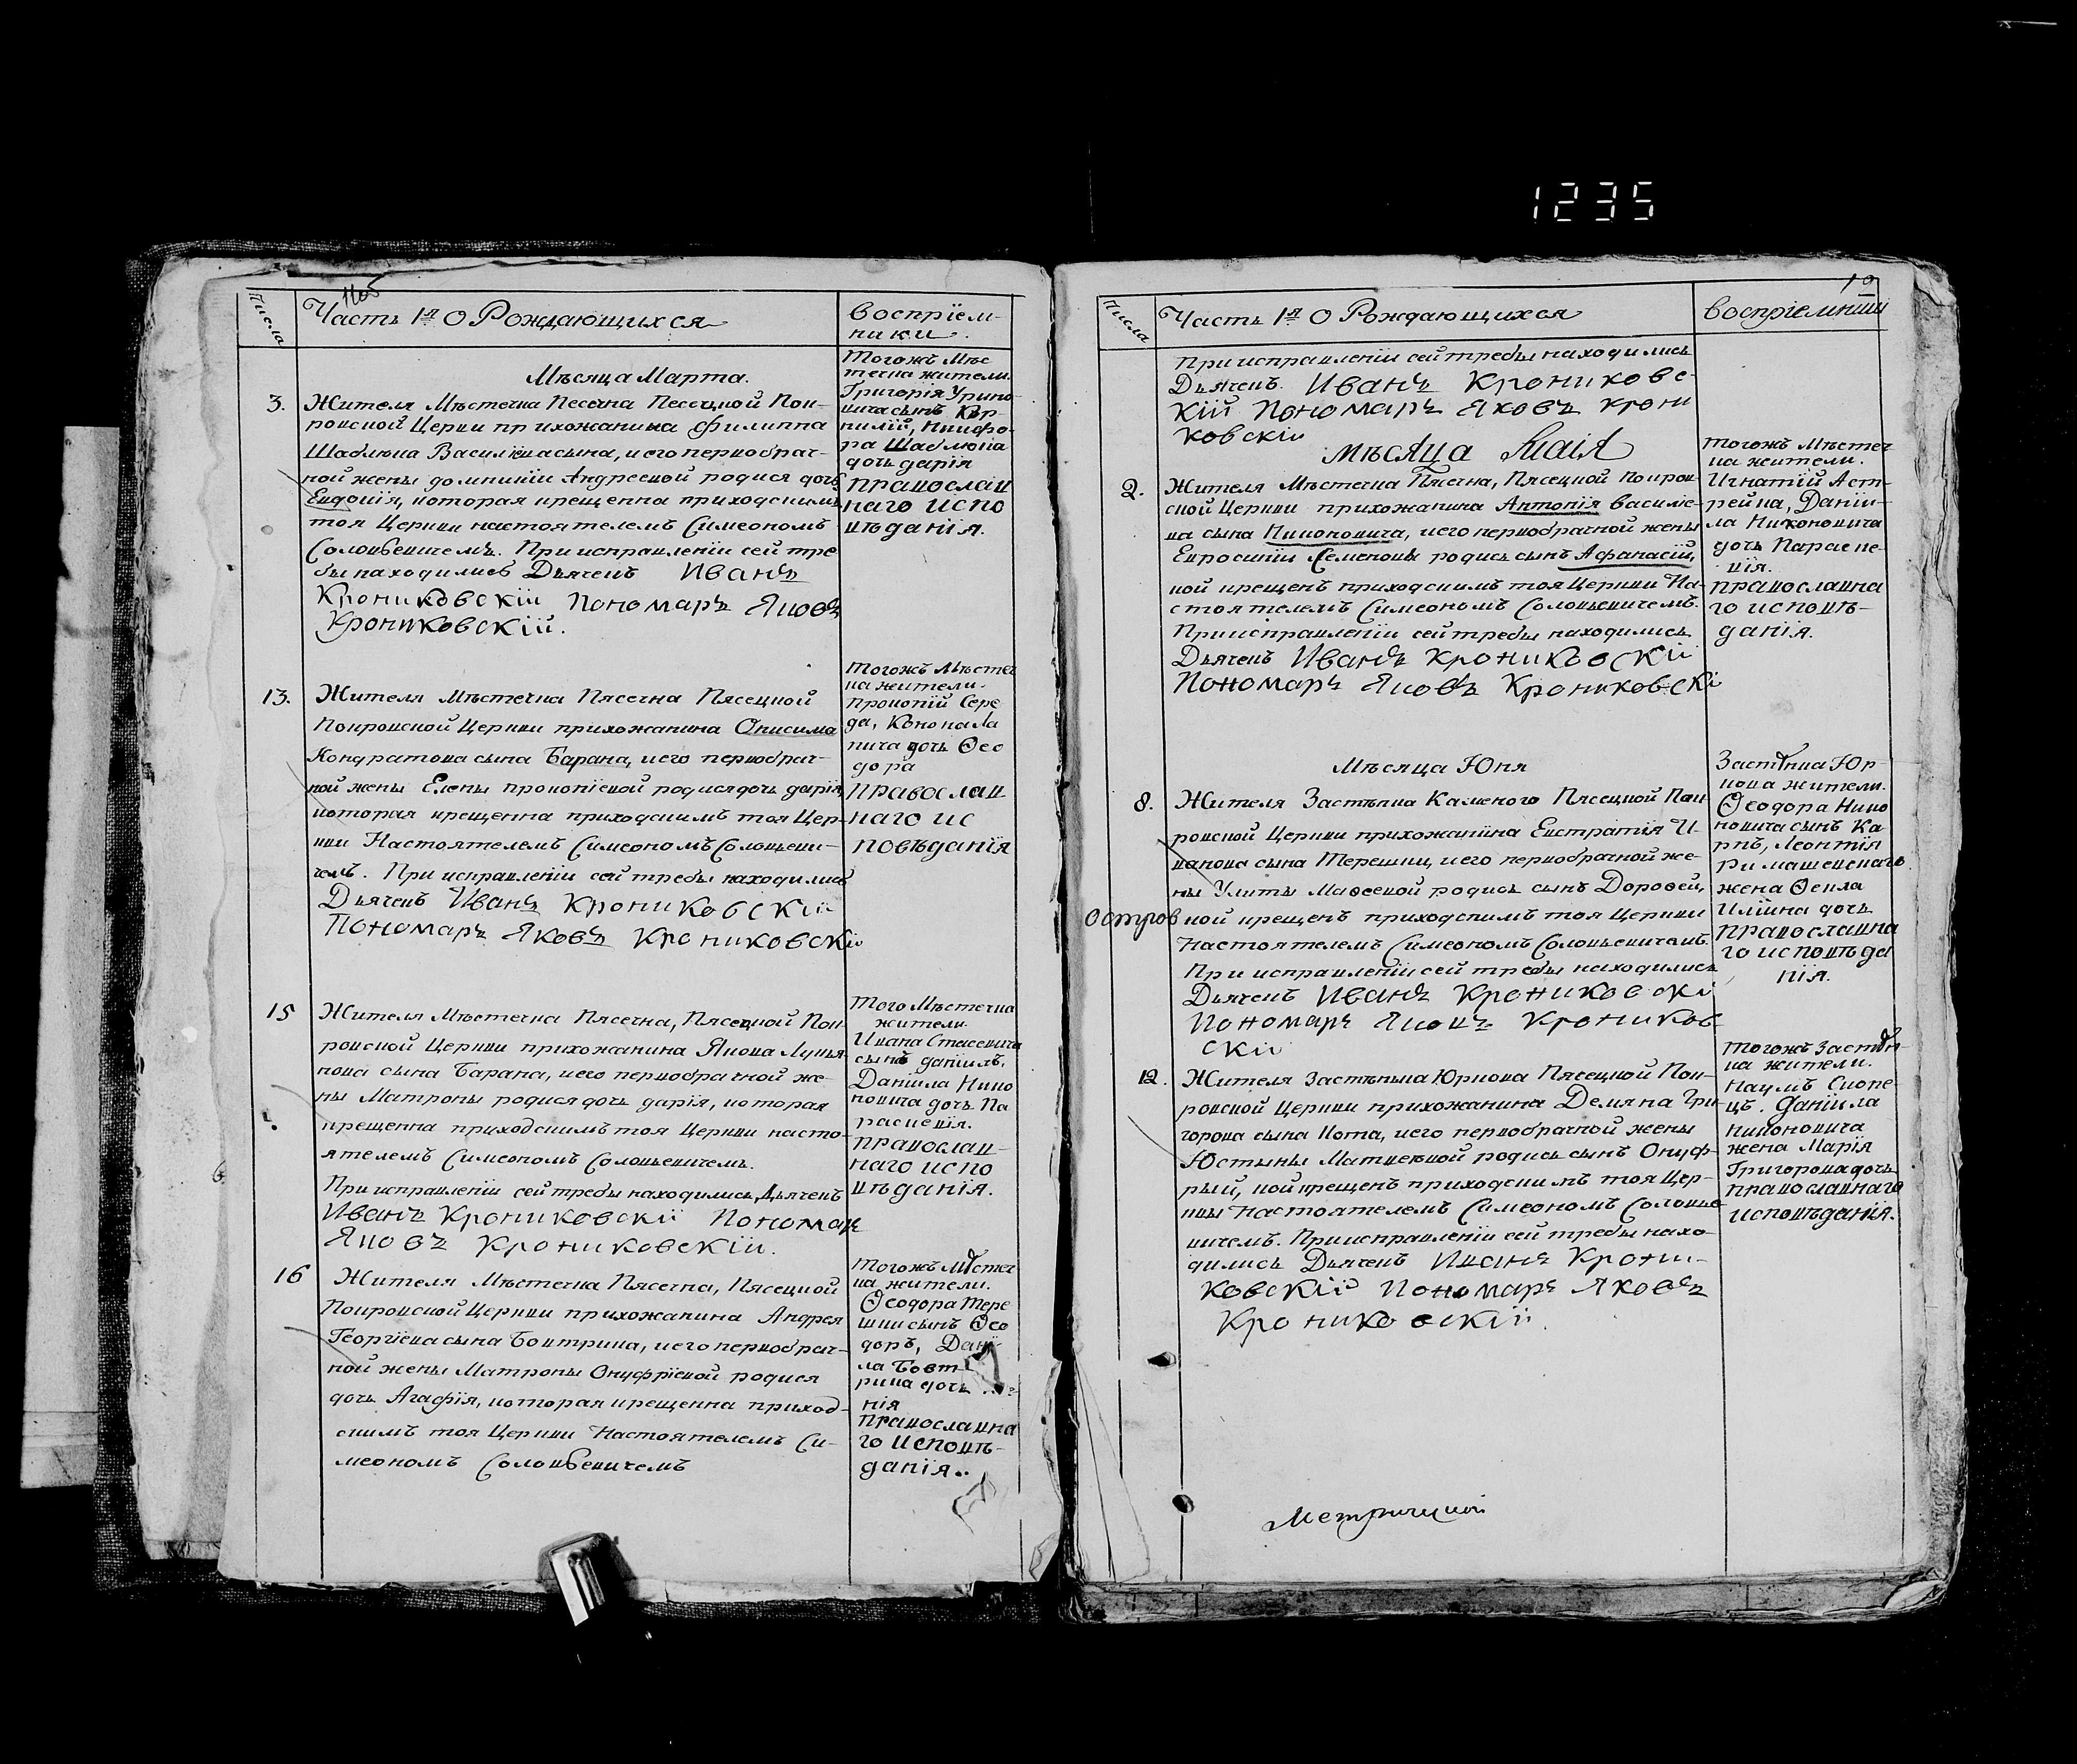 1235
1105
Числа
Часть 1я О Рождающихся
Воспріем-
ники.
Мѣсяца Марта.
3.
Жителя Мѣстечка Песечна Песецкой Пок-
ровской Церкви прихожанина Филиппа
Шаблюка Василіева сына, и его первобрач-
ной жены Домникіи Андреевой родися дочь
Евдокія, которая крещенна приходскимъ
тоя Церкви настоятелемъ Симеономъ
Соловьевичемъ. При исправленіи сей тре
бы находились Дьячекъ Иванъ
Крониковскій Пономарь Яковъ
Крониковскій.
Тогожъ Мѣс
течка жители.
Григорія
сынъ Кор-
нилій, Никифо-
ра Шаблюка
дочь Дарія
православ
наго испо
вѣданія.
13.
Жителя Мѣстечка Пясечна Пясецкой
Покровской Церкви прихожанина Онисима
Кондратова сына Барана, и его первобрач-
ной жены Елены Прокопіевой родися дочь Дарія
которая крещенна приходскимъ тоя Цер-
кви Настоятелемъ Симеономъ Соловьеви-
чемъ. При исправленіи сей требы находились
Дьячекъ Иванъ Крониковскій
Пономарь Яковъ Крониковскій
Тогожъ Мѣстеч
ка жители.
Прокопій Сере
да, Конона Ла
пича дочь Ѳео
дора
православ
наго ис
повѣданія
15
Жителя Мѣстечка Пясечна, Пясецкой Пок
ровской Церкви прихожанина Якова Лукья
нова сына Барана, и его первобрачной же-
ны Матроны родися дочь Дарія, которая
крещенна приходскимъ тоя Церкви насто-
ятелемъ Симеономъ Соловьевичемъ.
При исправленіи сей требы находились, Дьячекъ
Иванъ Крониковскій Пономар
Яковъ Крониковскій.
Того Мѣстечка
жители.
Ивана Стасевича
сынъ Даніилъ,
Даніила Нико
новича дочь Па
раскевія.
православ-
наго испо
вѣданія.
16
Жителя Мѣстечка Пясечна, Пясецкой
Покровской Церкви прихожанина Андрея
Георгіева сына Бовтрика, и его первобрач-
ной жены Матроны Онуфріевой родися
дочь Агафія, которая крещенна приход-
скимъ тоя Церкви Настоятелемъ Си-
меономъ Соловьевичемъ
Тогожъ Мѣстеч
ка жители.
Ѳеодора Тере
шки сынъ Ѳео
доръ, Дані
ла Бовт
рика дочь
нія
православна
го исповѣ-
данія..
10
Числа
Часть 1я О Рождающихся
Воспріемники
При исправленіи сей требы находились
Дьячекъ. Иванъ Крониковс-
кій Пономарь Яковъ Крони
ковскій
Мѣсяца Маія
2.
Жителя Мѣстечка Пясечна, Пясецкой Покров
ской Церкви прихожанина Антонія Василіе-
ва сына Никоновича, и его первобрачной жены
Евросиніи Семеновы родись сынъ Афанасій,
кой крещенъ приходскимъ тоя Церкви На-
стоятелемъ Симеономъ Соловьевичемъ.
При исправленіи сей требы находились
Дьячекъ Иванъ Крониковскій
Пономарь Яковъ Крониковскі
Тогожъ Мѣстеч
ка жители.
Игнатій Аст-
рейка, Даніи-
ла Никоновича
дочь Параске-
вія.
православна
го исповѣ-
данія.
Мѣсяца Юня
8.
Жителя Застѣнка Каменого Пясецкой Пок
ровской Церкви прихожанина Евстратія И-
ванова сына Терешки, и его первобрачной же-
ны Улиты Моѳсевой родись сынъ Дороѳей,
Остров
кой крещенъ приходскимъ тоя Церкви
Настоятелемъ Симеономъ Соловьевичемъ.
При исправленіи сей требы находились
Дьячекъ Иванъ Крониковскі
Пономарь Яковъ Кроников
скій
Застѣнка Юр-
кова жители.
Ѳеодора Нико
новича сынъ Ка-
рпъ, Леонтія
Римашевскаго
жена Ѳекла
Илійна дочь
православна
го исповѣда
нія.
12.
Жителя Застѣнька Юркова Пясецкой Пок-
ровской Церкви прихожанина Демяна Гри-
горова сына Кота, и его первобрачной жены
Юстыны Матвеевой родись сынъ Онуф-
рый, кой крещенъ приходскимъ тоя Цер-
квы Настоятелемъ Симеономъ Соловье
вичемъ. При исправленіи сей требы нахо-
дились Дьячекъ Иванъ Крони-
ковскій Пономарь Яковъ
Крониковскій.
Тогожъ Застѣн-
ка жители.
Наумъ Скоре
цъ. Даніила
Никоновича
жена Марія
Григорова дочь
православнаго
исповѣданія.